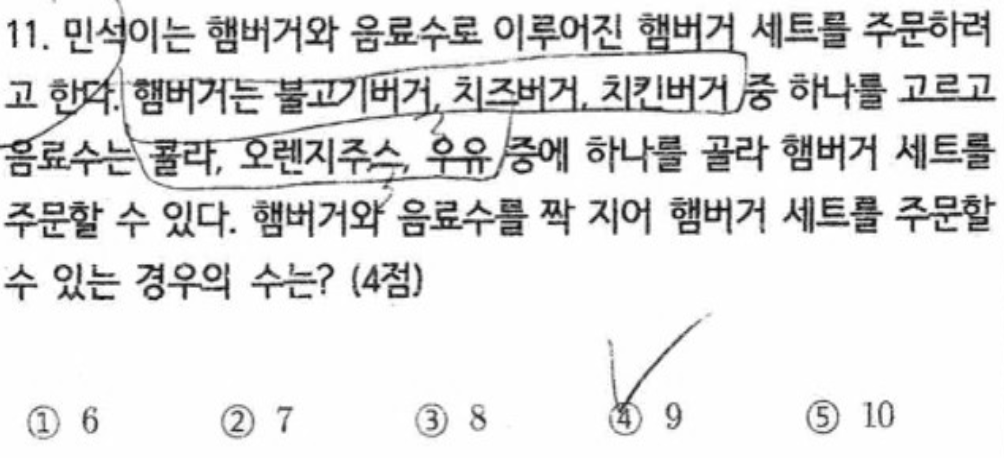 11. 민석이는 햄버거와 음료수로 이루어진 햄버거 세트를 주문하려
고 한다. 햄버거는 불고기버거, 치즈버거, 치킨버거 중 하나를 고르고
음료수는 콜라, 오렌지주스, 우유 중에 하나를 골라 햄버거 세트를
주문할 수 있다. 햄버거와 음료수를 짝 지어 햄버거 세트를 주문할
수 있는 경우의 수는? (4점)
① 6 ② 7 ③ 8 ④ 9 ⑤ 10